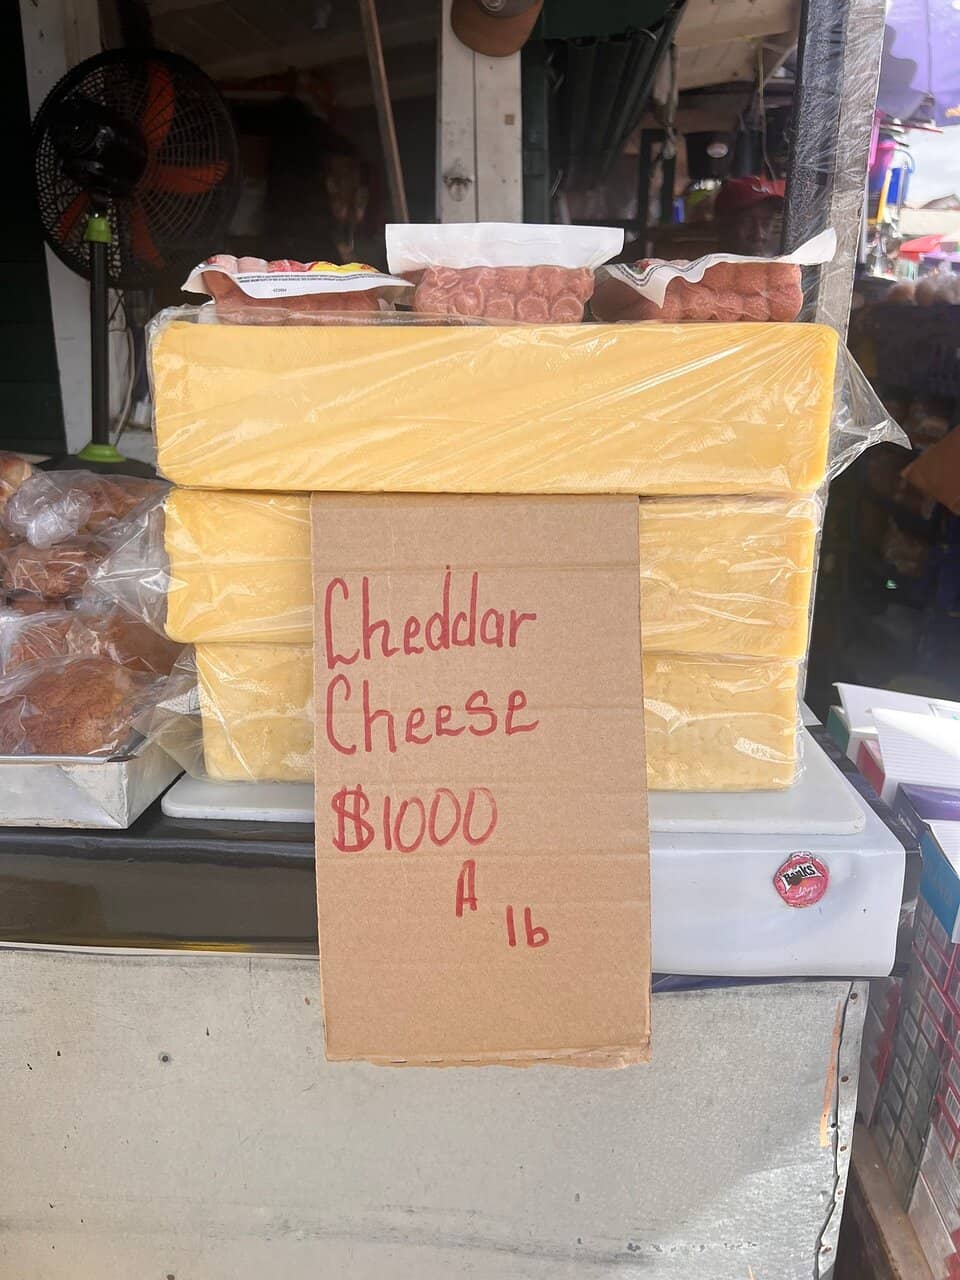 Cheddar
Cheese
$1000
A
lb
Banks